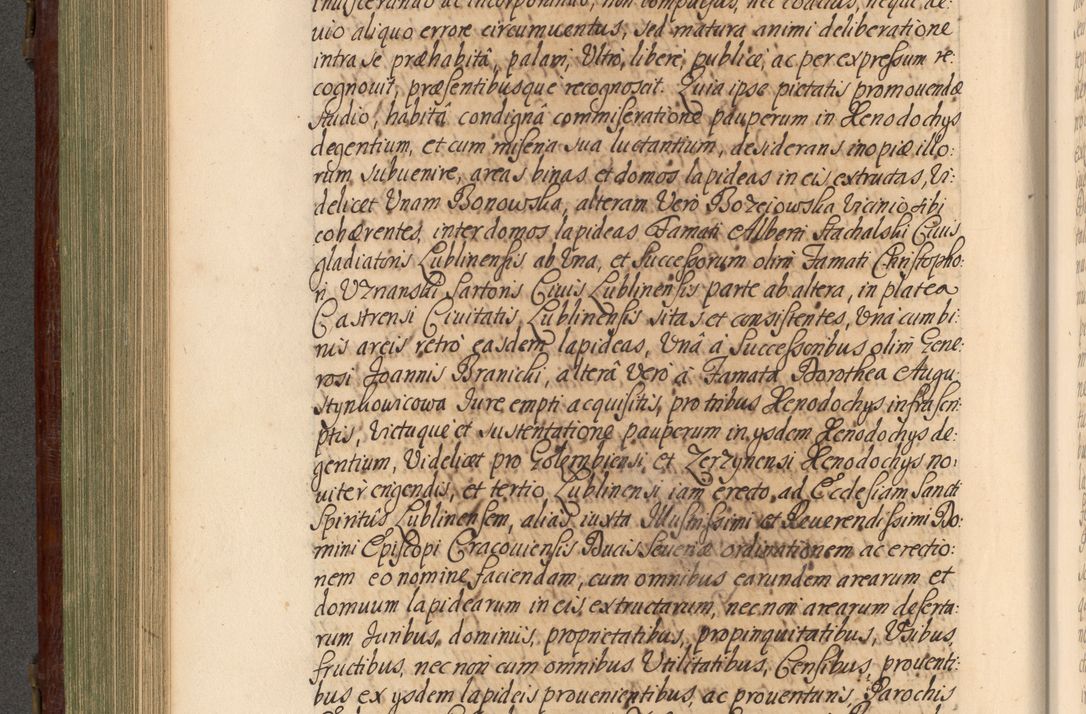 induscerando ac incorporando, non compulsus, nec coactus, neque de:
uio aliquo errore circumuentus, sed matura animi deliberatione
intra se præhabitâ, palam, Ultro, liberè, publicè, ac per expressum re:
cognouit, præsentibusque recognoscit. Quia ipse pietatis promouendæ
studio, habitâ condignâ commiseratione pauperum in Xenodochys
degentium, et cum miseria sua luctantium, desiderans inopiæ illo:
rum subuenire, areas binas et domos lapideas in eis extructas, Vi:
delicet Unam Bonowska, alteram Verò Bozejowska Vicinio sibi
cohærentes, inter domos lapideas Famati Alberti Stachalski Ciuis
gladiatoris Lublinensis ab Una, et Successorum olim Famati Christopho:
ri Uznanski Sartoris Ciuis Lublinensis parte ab altera, in platea
Castrensi Ciuitatis Lublinensis sitas et consistentes, Unà cum bi:
nis areis retrò easdem lapideas, Unâ à Successoribus olim Gene:
rosi Joannis Branicki, alterâ Verò à Famata Dorothea Augu:
stynkowicowa Jure empti acquisitis, pro tribus Xenodochys infrascri:
ptis, Victuque et sustentatione pauperum in ysdem Xenodochys de:
gentium, Videlicet pro Golembiensi, et Zerzynensi Xenodochys no:
uiter erigendis, et tertio Lublinensi iam erecto ad Ecclesiam Sancti
Spiritûs Lublinensem, alias iuxta Illustrissimi et Reuerendissimi Do:
mini Episcopi Cracouiensis Ducis Seueriæ ordinationem ac erectio:
nem eo nomine faciendam, cum omnibus earundem arearum et
domuum lapidearum in eis extructarum, nec non arearum deserta:
rum Juribus, dominiis, proprietatibus, propinquitatibus, Usibus
fructibus, nec non cum omnibus Utilitatibus, Censibus, prouenti:
bus ex ysdem lapideis prouenientibus, ac prouenturis, Parochis